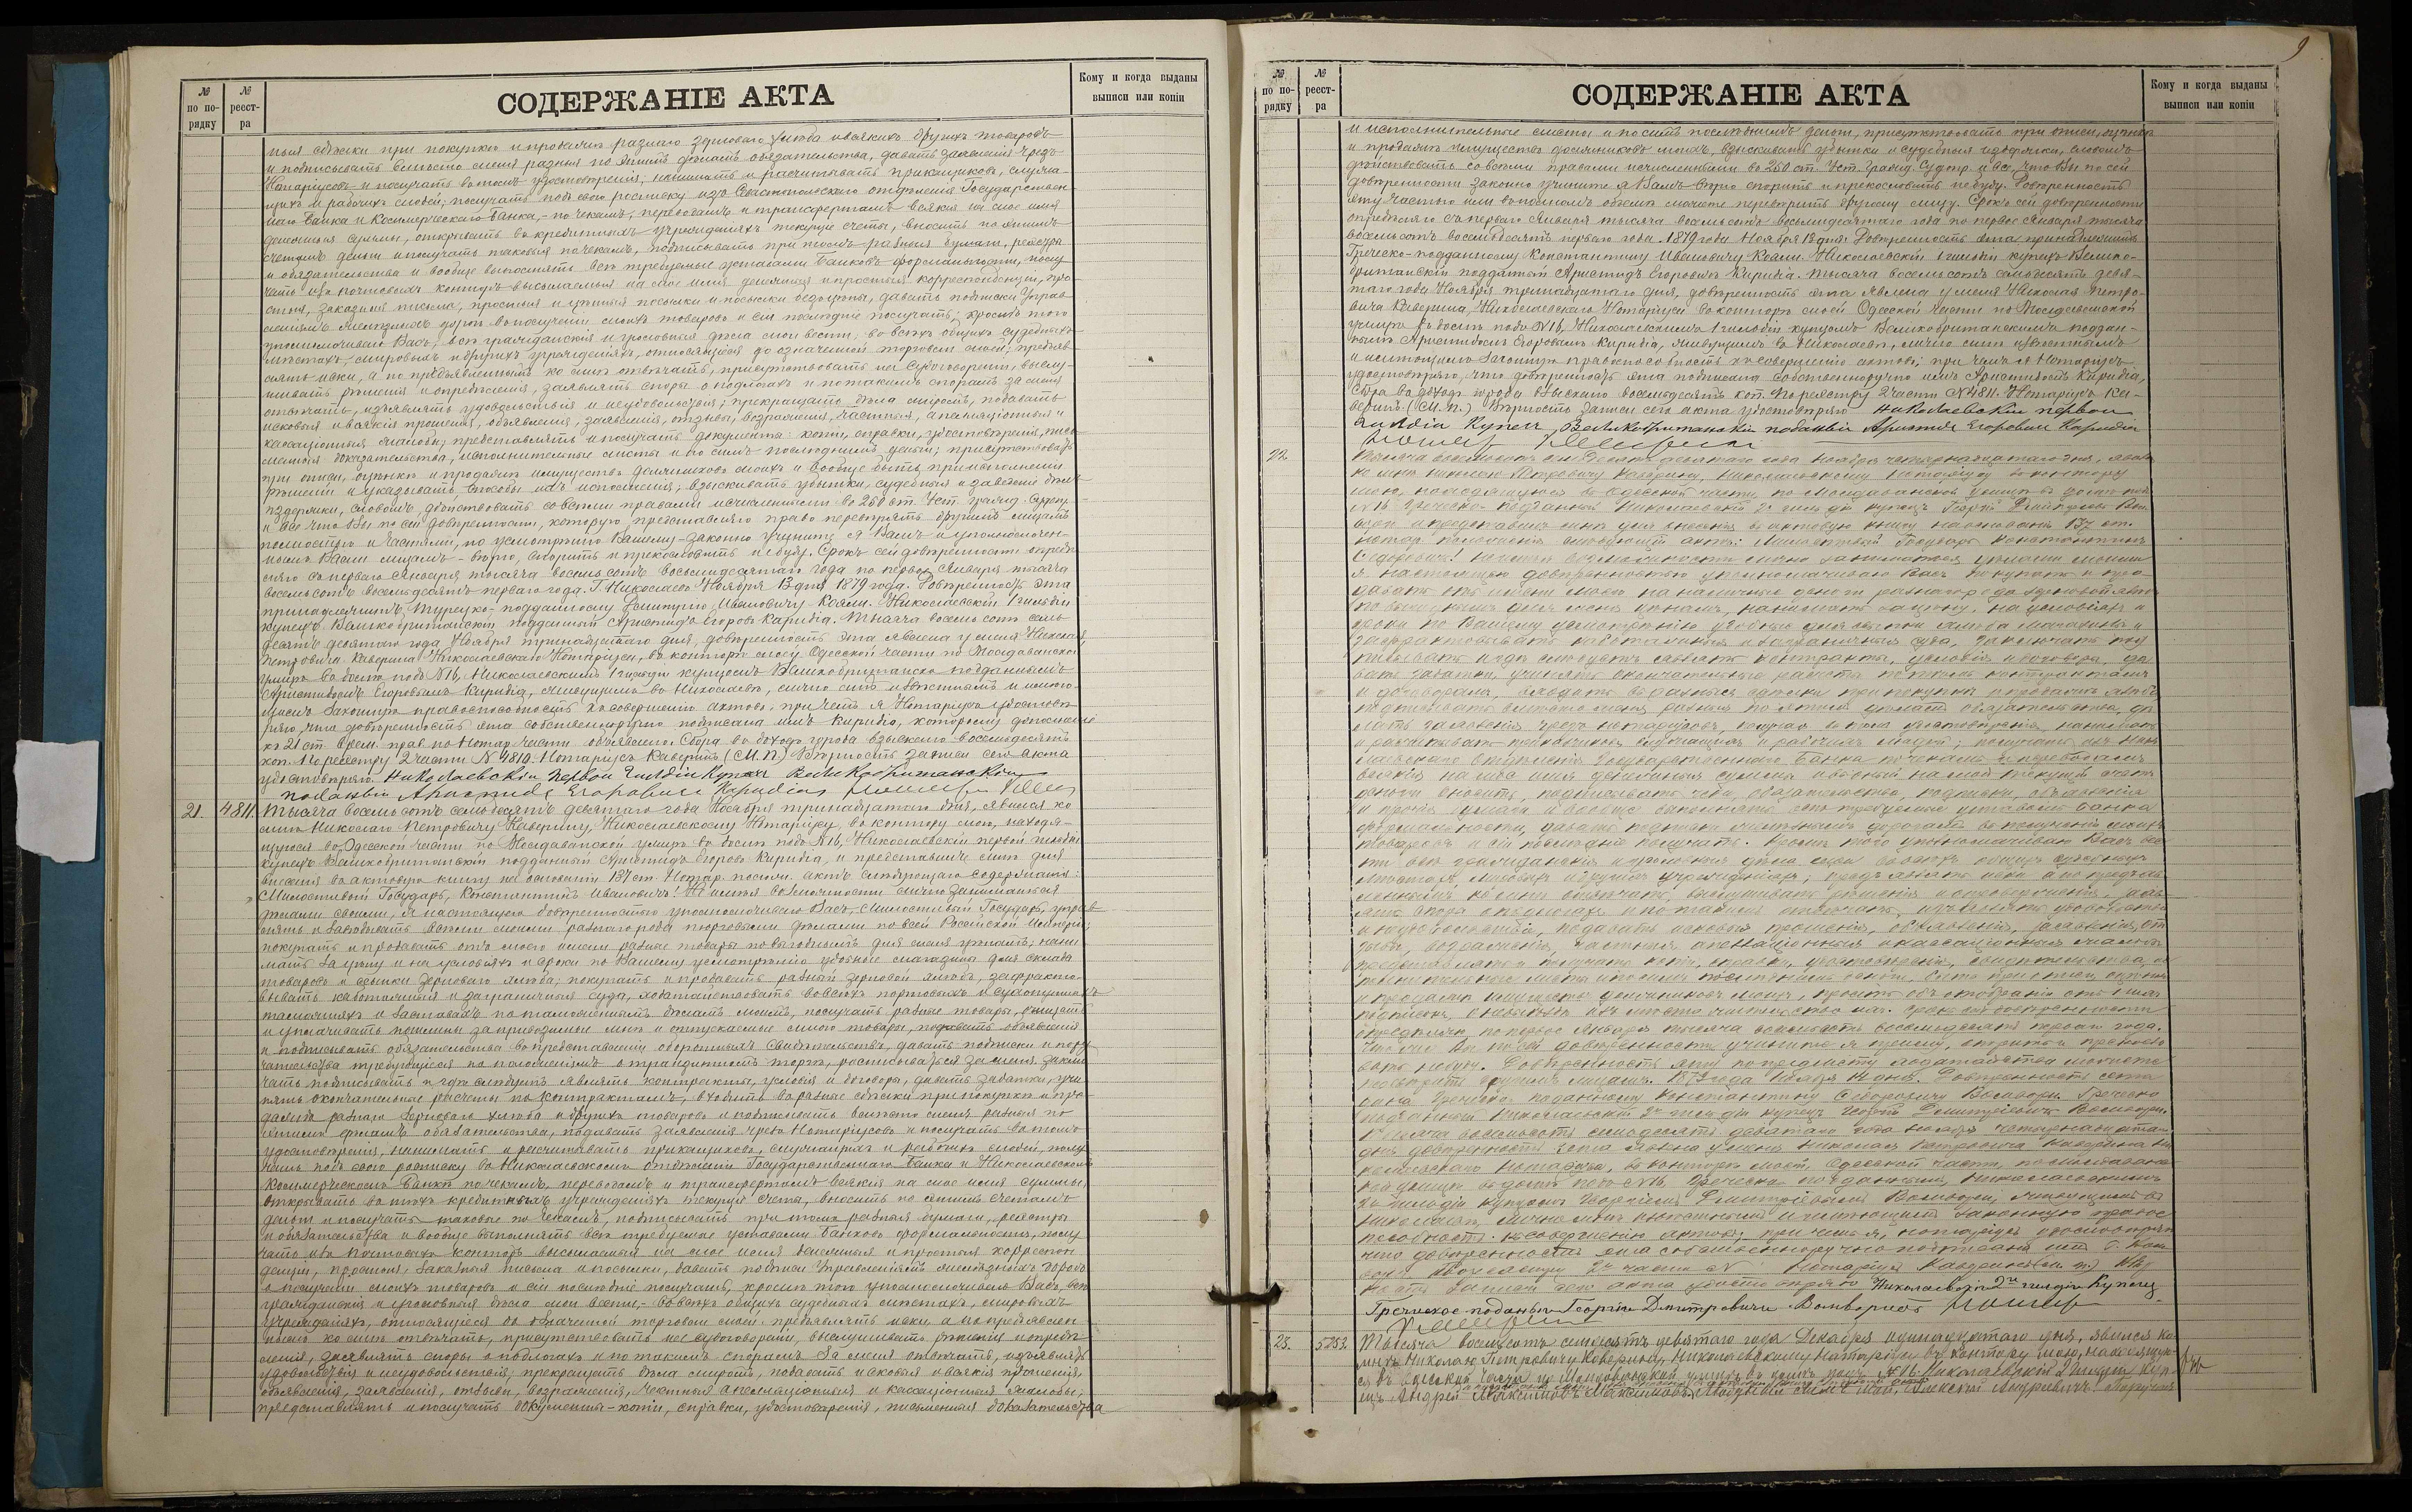 № по порядку
№ реестра
СОДЕРЖАНІЕ АКТА
Кому и когда выданы выписи или копіи
ныя сдѣлки при покупкѣ и продажѣ разнаго зерноваго хлѣба и всякихъ другихъ товаровъ
и подписывать вмѣсто меня разныя по этимъ дѣламъ обязательства, давать заявленія чрезъ
Нотаріусовъ и получать въ томъ удостовѣренія; нанимать и расчитывать прикащиковъ, служа-
щихъ и рабочихъ людей; получать подъ свою росписку изъ Севастопольскаго отдѣленія Государствен-
наго Банка и Коммерческаго Банка, по чекамъ, переводамъ и трансфертамъ всякія на мое имя
денежныя суммы, открывать въ кредитныхъ учрежденіяхъ текущіе счеты, вносить по этимъ
счетамъ деньги и получать таковыя по чекамъ, подписывать при томъ разныя бумаги, реестры
и обязательства и вообще выполнять всѣ требуемые уставами Банковъ формальности, полу-
чать изъ почтовыхъ конторъ высылаемыя на мое имя денежныя и простыя корреспонденціи, про-
стыя, заказныя письма, простыя и цѣнныя посылки и посылки безъ цѣны, давать подписки Управ-
леніямъ желѣзныхъ дорогъ въ полученіи моихъ товаровъ и сіи послѣдніе получать; кромѣ того
уполномочиваю Васъ, всѣ гражданскія и уголовныя дѣла мои вести, во всѣхъ общихъ судебныхъ
мѣстахъ, мировыхъ и другихъ учрежденіяхъ, относящіяся до означенной торговли моей; предъяв-
лять иски, а по предъявленнымъ ко мнѣ отвѣчать, присутствовать на судоговореніи, выслу-
шивать рѣшенія и опредѣленія, заявлять споры о подлогахъ и по такимъ спорамъ за меня
отвѣчать, изъявлять удовольствія и неудовольствія; прекращать дѣла миромъ, подавать
исковыя и всякія прошенія, объявленія, заявленія, отзывы, возраженія, частныя, апелляціонныя и
кассаціонныя жалобы, представлять и получать документы: копіи, справки, удостовѣренія, пись-
менныя доказательства, исполнительные листы и по симъ послѣднимъ деньги; присутствовать
при описи, оцѣнкѣ и продажѣ имуществъ должниковъ моихъ и вообще быть при исполненіи
рѣшеній и указывать способы ихъ исполненія; взыскивать убытки, судебныя и за веденіе дѣлъ
издержки, словомъ, дѣйствовать со всѣми правами исчисленными въ 250 ст. Уст. гражд. Судопр.
и все что Вы по сей довѣренности, которую представляю право перевѣрять другимъ лицамъ
полностью и частями, по усмотрѣнію Вашему - законно учините я Вамъ и уполномочен-
нымъ Вами лицамъ - вѣрю, спорить и прекословить не буду. Срокъ сей довѣренности опредѣ-
ляю съ перваго Января тысяча восемьсотъ восьмидесятаго года по первое Января тысяча
восемьсотъ восемьдесятъ перваго года. Г. Николаевъ Ноября 13 дня 1879 года. Довѣренность эта
принадлежитъ Турецко-подданному Дмитрію Ивановичу Коялли. Николаевскій 1 гильдіи
купецъ Великобританскій подданный Аристидъ Егоровъ Каридіа. Тысяча восемьсотъ семь-
десятъ девятаго года Ноября тринадцатаго дня, довѣренность эта явлена у меня Николая
Петровича Каверина Николаевскаго Нотаріуса, въ конторѣ моей Одесской части по Молдаванской
улицѣ въ домѣ подъ №16, Николаевскимъ 1 гильдіи купцомъ Великобританско-подданнымъ
Аристидомъ Егоровымъ Каридіа, живущимъ въ Николаевѣ, лично мнѣ извѣстнымъ и имѣю-
щимъ законную правоспособность къ совершенію актовъ; при чемъ я Нотаріусъ удостовѣ-
ряю, что довѣренность эта собственноручно подписана имъ Каридіа, которому дополненіе
къ 21 ст. врем. прав. по Нотар. части объявлено. Сбора въ доходъ города взыскано восемьдесятъ
коп. По реестру 2 части № 4810. Нотаріусъ Каверинъ (М. П.) Вѣрность записи сего акта
удостовѣряю. Николаевскій первой Гилдіи Купецъ Великобританскій
поданый Аристидъ Егоровичъ Каридіа
21. 4811. Тысяча восемьсотъ семьдесятъ девятаго года Ноября тринадцатаго дня, явился ко
мнѣ Николаю Петровичу Каверину, Николаевскому Нотаріусу, въ контору мою, находя-
щуюся въ Одесской части по Молдаванской улицѣ въ домѣ подъ №16, Николаевскій первой гильдіи
купецъ Великобританскій подданный Аристидъ Егоровъ Каридіа, и представилъ мнѣ для
внесенія въ актовую книгу на основаніи 137 ст. Нотар. полож. актъ слѣдующаго содержанія:
"Милостивый Государь, Константинъ Ивановичъ! Не имѣя возможности лично заниматься
дѣлами своими, я настоящею довѣренностью уполномочиваю Васъ, Милостивый Государь, управ-
лять и завѣдывать всѣми моими разнаго рода торговыми дѣлами по всей Россійской Имперіи;
покупать и продавать отъ моего имени разные товары по выгоднымъ для меня цѣнамъ; нани-
мать за цѣну и на условіяхъ и сроки по Вашему усмотрѣнію удобные магазины для склада
товаровъ и ссыпки зерноваго хлѣба, покупать и продавать разный зерновой хлѣбъ, зафрахто-
вывать каботажныя и заграничныя суда, ходатайствовать во всѣхъ портовыхъ и сухопутныхъ
таможняхъ и заставахъ по таможеннымъ дѣламъ моимъ, получать разные товары, очищать
и уплачивать пошлины за привозимые мнѣ и отпускаемые мною товары, подавать объявленія
и подписывать обязательства въ представленіи оборотныхъ Свидѣтельствъ, давать подписки и пору-
чительства требующіяся по положеніямъ о транзитномъ торгѣ, росписываться за меня. Заклю-
чать подписывать и гдѣ слѣдуетъ являть контракты, условія и договоры, давать задатки, учи-
нять окончательные расчеты по контрактамъ, входить въ разные сдѣлки при покупкѣ и про-
дажѣ разнаго зерноваго хлѣба и другихъ товаровъ и подписывать вмѣсто меня разныя по
этимъ дѣламъ обязательства, подавать заявленія чрезъ Нотаріусовъ и получать въ томъ
удостовѣренія, нанимать и расчитывать прикащиковъ, служащихъ и рабочихъ людей, полу-
чать подъ свою росписку въ Николаевскомъ отдѣленіи Государственнаго Банка и Николаевскомъ
Коммерческомъ Банкѣ по чекамъ, переводамъ и трансфертамъ всякія на мое имя суммы,
открывать въ тѣхъ кредитныхъ учрежденіяхъ текущіе счеты, вносить по этимъ счетамъ
деньги и получать таковые по чекамъ, подписывать при томъ разныя бумаги, реестры
и обязательства и вообще выполнять всѣ требуемые уставами Банковъ формальности, полу-
чать изъ почтовыхъ конторъ высылаемыя на мое имя денежныя и простыя корреспон-
денціи, простыя, заказныя письма и посылки, давать подписки Управленіямъ желѣзныхъ дорогъ
о полученіи моихъ товаровъ и сіи послѣдніе получать, кромѣ того уполномочиваю Васъ, всѣ
гражданскія и уголовныя дѣла мои вести, - во всѣхъ общихъ судебныхъ мѣстахъ, мировыхъ
учрежденіяхъ, относящіяся до означенной торговли моей: предъявлять иски, а по предъявлен-
нымъ ко мнѣ отвѣчать, присутствовать на судоговореніи, выслушивать рѣшенія и опредѣ-
ленія, заявлять споры о подлогахъ и по такимъ спорамъ за меня отвѣчать, изъявлять
удовольствія и неудовольствія; прекращать дѣла миромъ, подавать исковыя и всякія прошенія,
объявленія, заявленія, отзывы, возраженія, частныя апелляціонныя и кассаціонныя жалобы;
представлять и получать документы-копіи, справки, удостовѣренія, письменныя доказательства
9
№ по порядку
№ реестра
СОДЕРЖАНІЕ АКТА
Кому и когда выданы выписи или копіи
и исполнительные листы и по симъ послѣднимъ деньги, присутствовать при описи, оцѣнкѣ
и продажѣ имуществъ должниковъ моихъ, взыскивать убытки и судебныя издержки, словомъ
дѣйствовать со всѣми правами исчисленными въ 250 ст. Уст. Гражд. Судопр. и все, что Вы по сей
довѣренности законно учините я Вамъ вѣрю спорить и прекословить не буду. Довѣренность
эту частью или въ полномъ объемѣ можете перевѣрить другому лицу. Срокъ сей довѣренности
опредѣляю съ перваго Января тысяча восемьсотъ восьмидесятаго года по первое Января тысяча
восемьсотъ восемьдесятъ перваго года. 1879 года Ноября 13 дня. Довѣренность эта принадлежитъ
Греческо-подданному Константину Ивановичу Коялли. Николаевскій 1 гильдіи купецъ Велико-
британскій подданный Аристидъ Егоровичъ Каридіа. Тысяча восемьсотъ семьдесятъ девя-
таго года Ноября тринадцатаго дня, довѣренность эта явлена у меня Николая Петро-
вича Каверина, Николаевскаго Нотаріуса въ конторѣ моей Одесской части по Молдаванской
улицѣ въ домѣ подъ №16, Николаевскимъ 1 гильдіи купцомъ Великобританскимъ поддан-
нымъ Аристидомъ Егоровымъ Каридіа, живущимъ въ Николаевѣ, лично мнѣ извѣстнымъ
и имѣющимъ законную правоспособность къ совершенію актовъ; при чемъ я Нотаріусъ
удостовѣряю, что довѣренность эта подписана собственноручно имъ Аристидомъ Каридіа,
Сбора въ доходъ города взыскано восемьдесятъ коп. По реестру 2 части № 4811. Нотаріусъ Ка-
веринъ (М. П.) Вѣрность записи сего акта удостовѣряю Николаевскій первой
Гилдіи Купецъ, Великобританскій поданый Аристидъ Егоровичъ Каридіа
22 Тысяча восемьсотъ семьдесятъ девятаго года Ноября четырнадцатаго дня, явился
ко мнѣ Николаю Петровичу Каверину, Николаевскому Нотаріусу въ контору
мою, находящуюся въ Одесской части по Молдаванской улицѣ въ домѣ подъ
№16 Греческо-подданный Николаевскій 2й гильдіи купецъ Георгій Дмитріевъ
и представилъ мнѣ для внесенія въ актовую книгу на основаніи 137 ст.
нотар. положенія слѣдующій актъ: Милостивый Государь Константинъ
Ѳедоровичъ! Не имѣя возможности лично заниматься дѣлами моими
я настоящею довѣренностью уполномочиваю Васъ покупать и про-
давать отъ имени моего на наличныя деньги разнаго рода зерновой хлѣбъ
по выгоднымъ для меня цѣнамъ, нанимать за цѣну, на условіяхъ и
сроки по Вашему усмотрѣнію удобные для ссыпки хлѣба магазины и
зафрахтовывать каботажныя и заграничныя суда, заключать под-
писывать и гдѣ слѣдуетъ являть контракты, условія и договоры, да-
вать задатки, учинять окончательные расчеты по этимъ контрактамъ
и договорамъ, входить въ разныя сдѣлки при покупкѣ и продажѣ хлѣба
подписывать вмѣсто меня разныя по этимъ дѣламъ обязательства, дѣ-
лать заявленія чрезъ нотаріусовъ, получая въ томъ удостовѣренія, нанимать
и расчитывать прикащиковъ служащихъ и рабочихъ людей; получать изъ Нико-
лаевскаго отдѣленія Государственнаго Банка по чекамъ и переводамъ
всякія на мое имя денежныя суммы и въ оный на мой текущій счетъ
деньги вносить, подписывать чеки обязательства, подписки, объявленія
и прочія бумаги и вообще выполнять всѣ требуемыя уставомъ Банка
формальности, давать подписки желѣзнымъ дорогамъ въ полученіи моихъ
товаровъ и сіи послѣдніе получать. Кромѣ того уполномочиваю Васъ вес-
ти всѣ гражданскія и уголовныя дѣла мои во всѣхъ общихъ судебныхъ
мѣстахъ, мировыхъ и другихъ учрежденіяхъ, предъявлять иски а по предъяв-
леннымъ ко мнѣ отвѣчать, выслушивать рѣшенія и опредѣленія, заяв-
лять споры о подлогахъ и по такимъ отвѣчать, изъявлять удовольствія
и неудовольствія, подавать исковыя прошенія, объявленія, заявленія, от-
зывы, возраженія, частныя апелляціонныя и кассаціонныя жалобы
представлять и получать копіи, справки, удостовѣренія, свидѣтельства, ис-
полнительные листы и по симъ послѣднимъ деньги, быть при описи, оцѣнкѣ
и продажѣ имущества должниковъ моихъ, просить объ отобраніи отъ
Срокъ сей довѣренности
опредѣляю по первое Января тысяча восемьсотъ восемьдесятъ перваго года.
Довѣренность эту
перевѣрить другимъ лицамъ. 1879 года Ноября 14 дня. Довѣренность
Греческо-подданному Константину Ѳедоровичу Вальсори. Греческо-
подданный Николаевскій 2й гильдіи купецъ Георгій Дмитріевичъ
Тысяча восемьсотъ семьдесятъ девятаго года Ноября четырнадцатаго
дня довѣренность эта явлена у меня Николая Петровича Каверина Ни-
колаевскаго Нотаріуса, въ конторѣ моей, Одесской части, по Молдаван-
ской улицѣ въ домѣ подъ №16, Греческо-подданнымъ, Николаевскимъ
2й гильдіи купцомъ Георгіемъ Дмитріевымъ живущимъ въ
Николаевѣ, лично мнѣ извѣстнымъ и имѣющимъ законную правос-
пособность къ совершенію актовъ; при чемъ я, нотаріусъ удостовѣряю
что довѣренность эта собственноручно подписана имъ Г.
По реестру 2й части № Нотаріусъ Каверинъ (м. п.) Вѣр-
ность записи сего акта удостовѣряю Николаевскій 2й гилдіи Купецъ
Греческое поданый Георгій Дмитровичъ
23. 5252. Тысяча восемьсотъ семьдесятъ девятаго года Декабря одинадцатаго дня, явился ко
мнѣ Николаю Петровичу Каверину, Николаевскому Нотаріусу въ контору мою, находящую-
ся въ Одесской части по Молдаванской улицѣ въ домѣ подъ №16 Николаевскій 2 гильдіи куп-
ецъ Андрей Максимовъ и представилъ мнѣ Алексѣй Андреевичъ